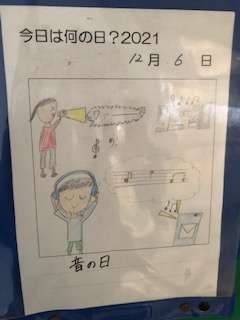 今日は何の日？2021
12月 6 日
音の日